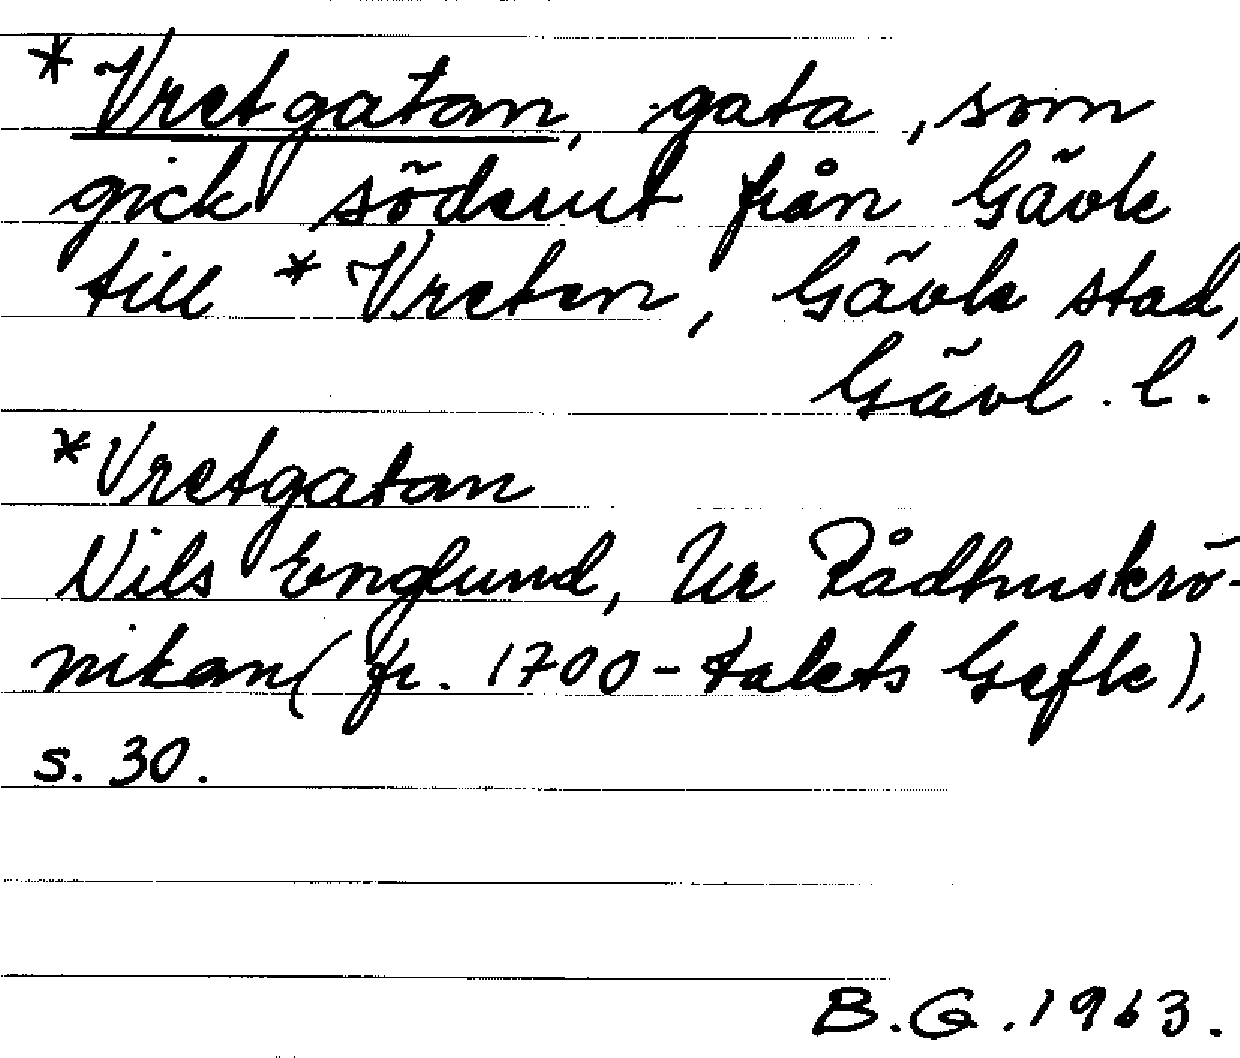 *Vretgatan, gata, som
gick söderut från Gävle
till *Vreten, Gävle stad,
Gävl. l.
*Vretgatan
Nils Englund, Ur Rådhuskrö-
nikan (fr. 1700-talets Gefle),
s. 30.
B.G. 1963.